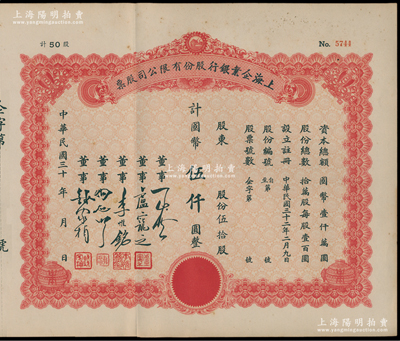 上海陽明拍賣
www.yangmingauction.com
計50股
No. 5744
上海企業銀行股份有限公司股票
資本總額 國幣壹仟萬圓
股份總數 拾萬股每股壹百圓
設立註冊 中華民國三十二年二月九日
股份編號 自 至第 號
股票號數 企字第 號
股東
股份伍拾股
計國幣伍仟圓整
董事
董事
董事 李
董事
董事
中華民國三十 年 月 日
企字第
號